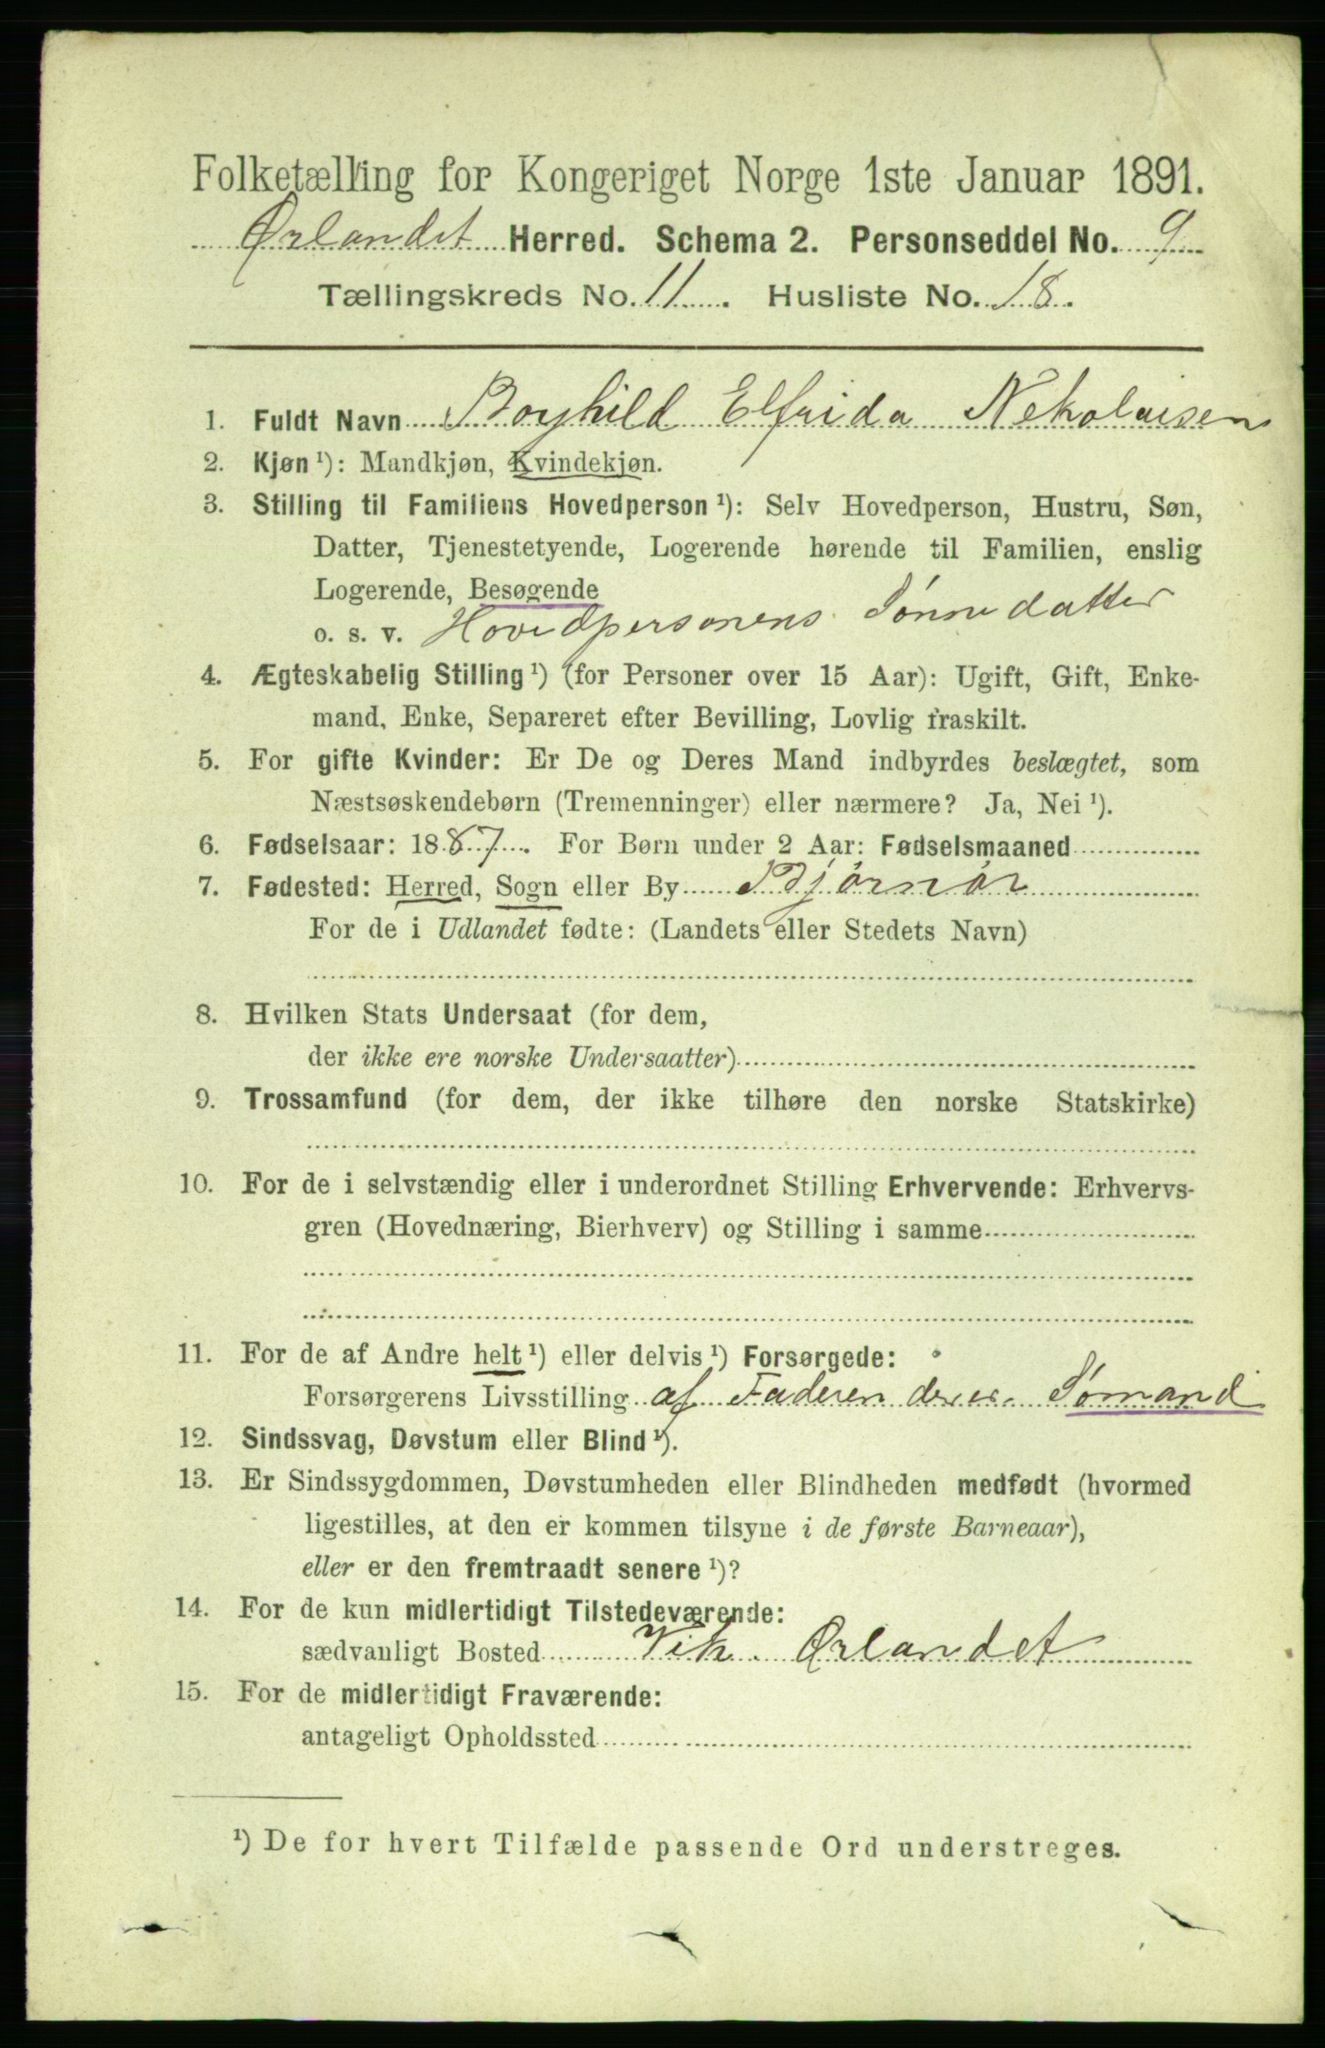 Folketælling for Kongeriget Norge 1ste Januar 1891.
Ørlandet Herred. Schema 2. Personseddel No. 9
Tællingskreds No. 11. Husliste No. 18.
1. Fuldt Navn Boyhild Elfrida Nekolaisen
2. Kjøn ¹): Mandkjøn, Kvindekjøn.
3. Stilling til Familiens Hovedperson ¹): Selv Hovedperson, Hustru, Søn,
Datter, Tjenestetyende, Logerende hørende til Familien, enslig
Logerende, Besøgende
o. s. v. Hovedpersonens Sønnedatter
4. Ægteskabelig Stilling ¹) (for Personer over 15 Aar): Ugift, Gift, Enke-
mand, Enke, Separeret efter Bevilling, Lovlig fraskilt.
5. For gifte Kvinder: Er De og Deres Mand indbyrdes beslægtet, som
Næstsøskendebørn (Tremenninger) eller nærmere? Ja, Nei ¹).
6. Fødselsaar: 1887. For Børn under 2 Aar: Fødselsmaaned
7. Fødested: Herred, Sogn eller By Bjørnør
For de i Udlandet fødte: (Landets eller Stedets Navn)
8. Hvilken Stats Undersaat (for dem,
der ikke ere norske Undersaatter)
9. Trossamfund (for dem, der ikke tilhøre den norske Statskirke)
10. For de i selvstændig eller i underordnet Stilling Erhvervende: Erhvervs-
gren (Hovednæring, Bierhverv) og Stilling i samme
11. For de af Andre helt ¹) eller delvis ¹) Forsørgede:
Forsørgerens Livsstilling af Faderen der er Sømand
12. Sindssvag, Døvstum eller Blind ¹).
13. Er Sindssygdommen, Døvstumheden eller Blindheden medfødt (hvormed
ligestilles, at den er kommen tilsyne i de første Barneaar),
eller er den fremtraadt senere ¹)?
14. For de kun midlertidigt Tilstedeværende:
sædvanligt Bosted Vik. Ørlandet
15. For de midlertidigt Fraværende:
antageligt Opholdssted
¹) De for hvert Tilfælde passende Ord understreges.